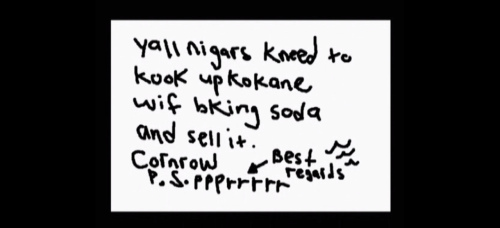 yall nigars kneed to
kook up kokane
wif bking soda
and sell it.
Cornrow
P.S. PPPrrrrr
Best
regards